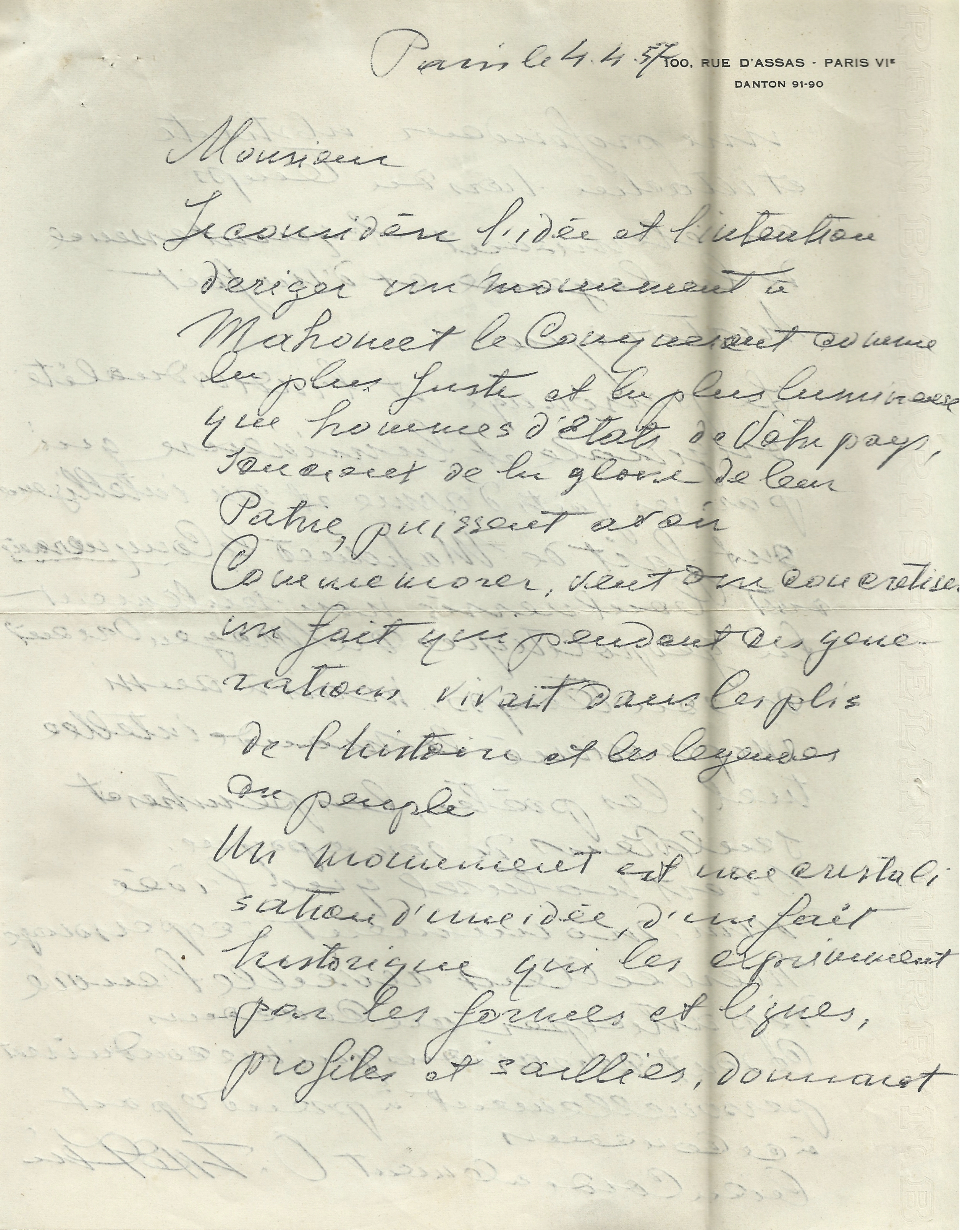 Paris le 4.4.57
100, RUE D'ASSAS · PARIS VIᵉ
DANTON 91-90
Monsieur
Je considère l'idée et l'intention
deriger un monument a
Mahomet le Conquerant comme
la plus Juste et la plus lumineuse
que hommes d'états de Votre pays,
soucieux de la gloire de leur
Patrie, puissent avoir
Commemorer, veut dire concretiser
un fait qui pendent des gene-
rations vivait dans les plis
de l'histoire et les legendes
du peuple
Un monument est une cristali
sation d'une idée, d'un fait
historique qui les expriment
par les formes et lignes,
profiles et saillies, donnant